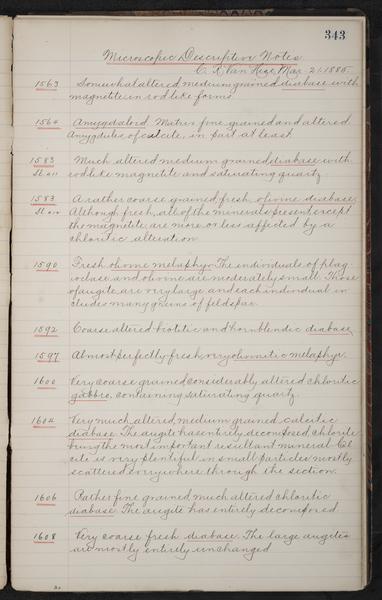 343
Microscopic Descriptive Notes
C. Van Hise, Mar. 21-1885.
1563 Somewhat altered medium grained diabase with
magnetite in rod like forms
1564 Amygdaloid. Matrix fine grained and altered
Amygdules of calcite, in part at least
1583 Much altered medium grained diabase with
rod like magnetite and saturating quartz
1583 A rather coarse grained fresh olivine diabase.
Although fresh, all of the minerals present except
the magnetite are more or less affected by a
chloritic alteration
1590 Fresh olivine melaphyr. The individuals of plag-
ioclase and olivine are moderately small. Those
of augite are very large and each individual in
cludes many grains of feldspar.
1592 Coarse altered biotitic and hornblendic diabase
1597 Almost perfectly fresh very olivinitic melaphyr.
1600 Very coarse grained considerably altered chloritic
gabbro, containing saturating quartz.
1604 Very much altered medium grained calcitic
diabase. The augite has entirely decomposed chlorite
being the most important resultant mineral. Cal
cite is very plentiful in small particles mostly
scattered everywhere through the section.
1606 Rather fine grained much altered chloritic
diabase. The augite has entirely decomposed.
1608 Very coarse fresh diabase. The large augites
are mostly entirely unchanged